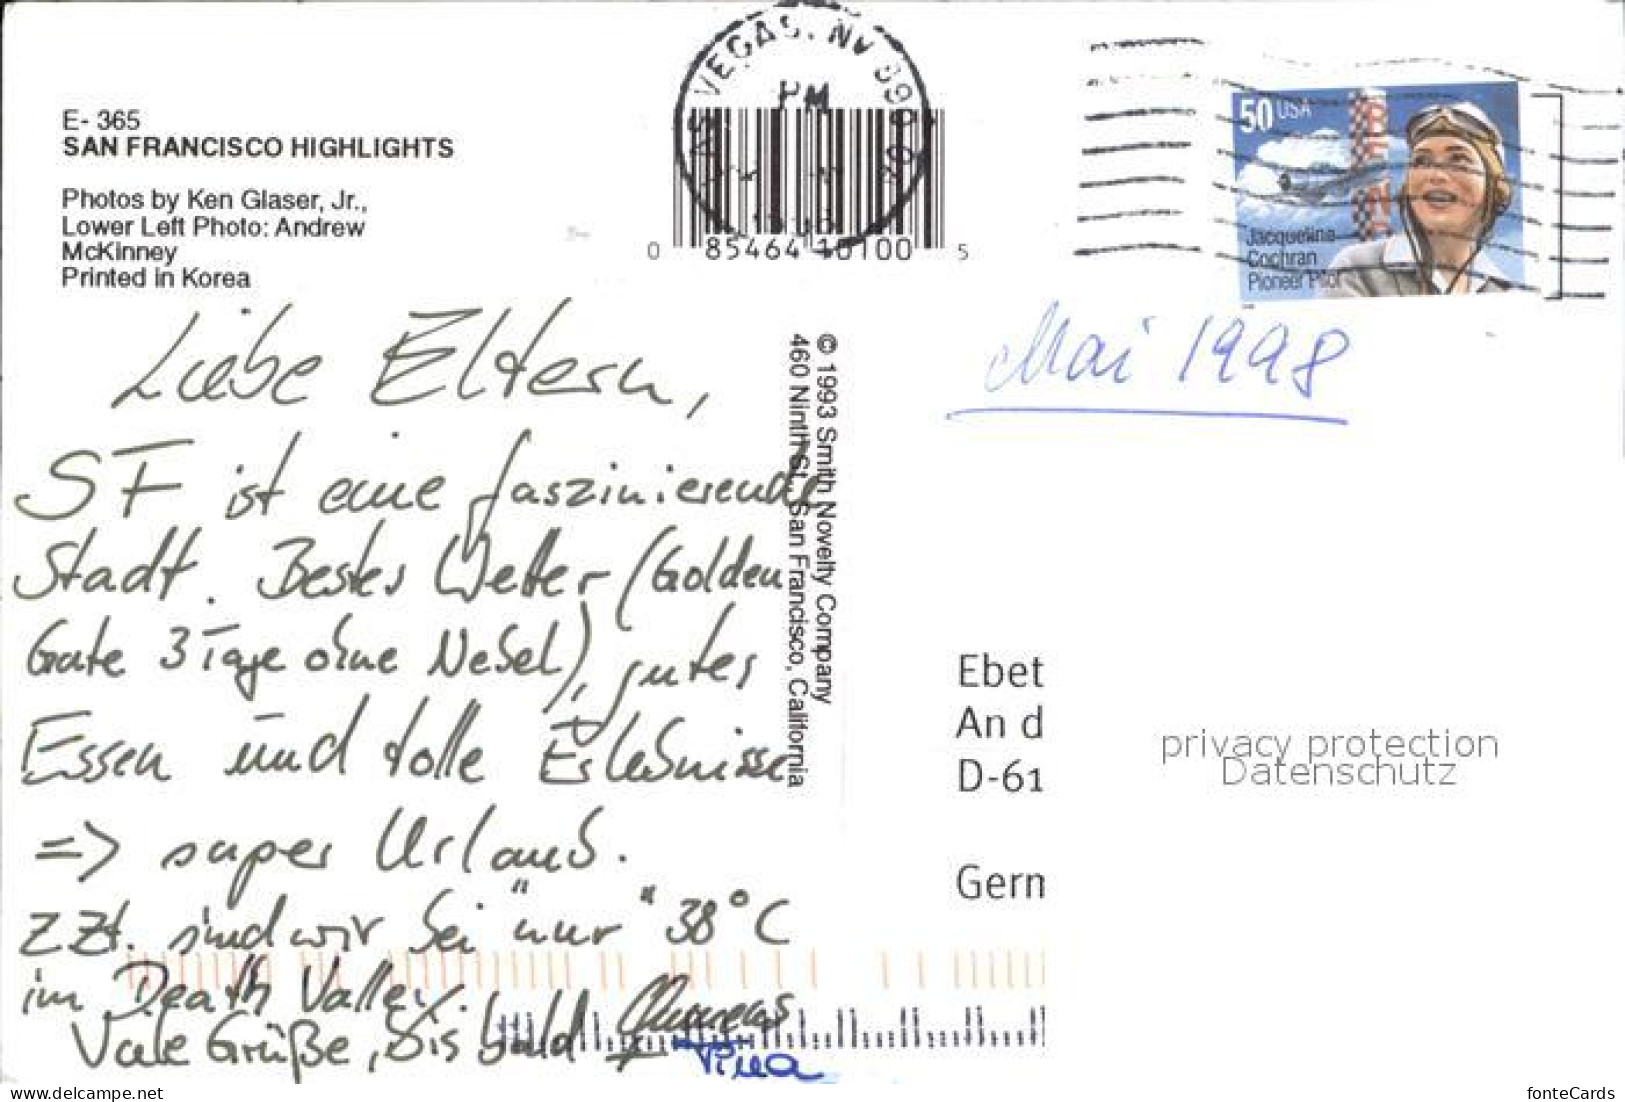 E- 365
SAN FRANCISCO HIGHLIGHTS
Photos by Ken Glaser, Jr.,
Lower Left Photo: Andrew
McKinney
Printed in Korea
VEGAS, NV 89
PM
0 85464 10100 5
50 USA
Jacqueline
Cochran
Pioneer Pilot
Mai 1998
Liebe Eltern,
SF ist eine faszinierende
Stadt. Bestes Wetter (Golden
Gate 3 Tage ohne Nebel), gutes
Essen und tolle Erlebnisse
=> super Urlaub.
zzt. sind wir bei "nur" 38°C
im Death Valley.
Viele Grüße, bis bald
+ Tina
© 1993 Smith Novelty Company
460 Ninth St., San Francisco, California
Ebet
An d
D-61
Gern
privacy protection
Datenschutz
delcampe.net
fonteCards